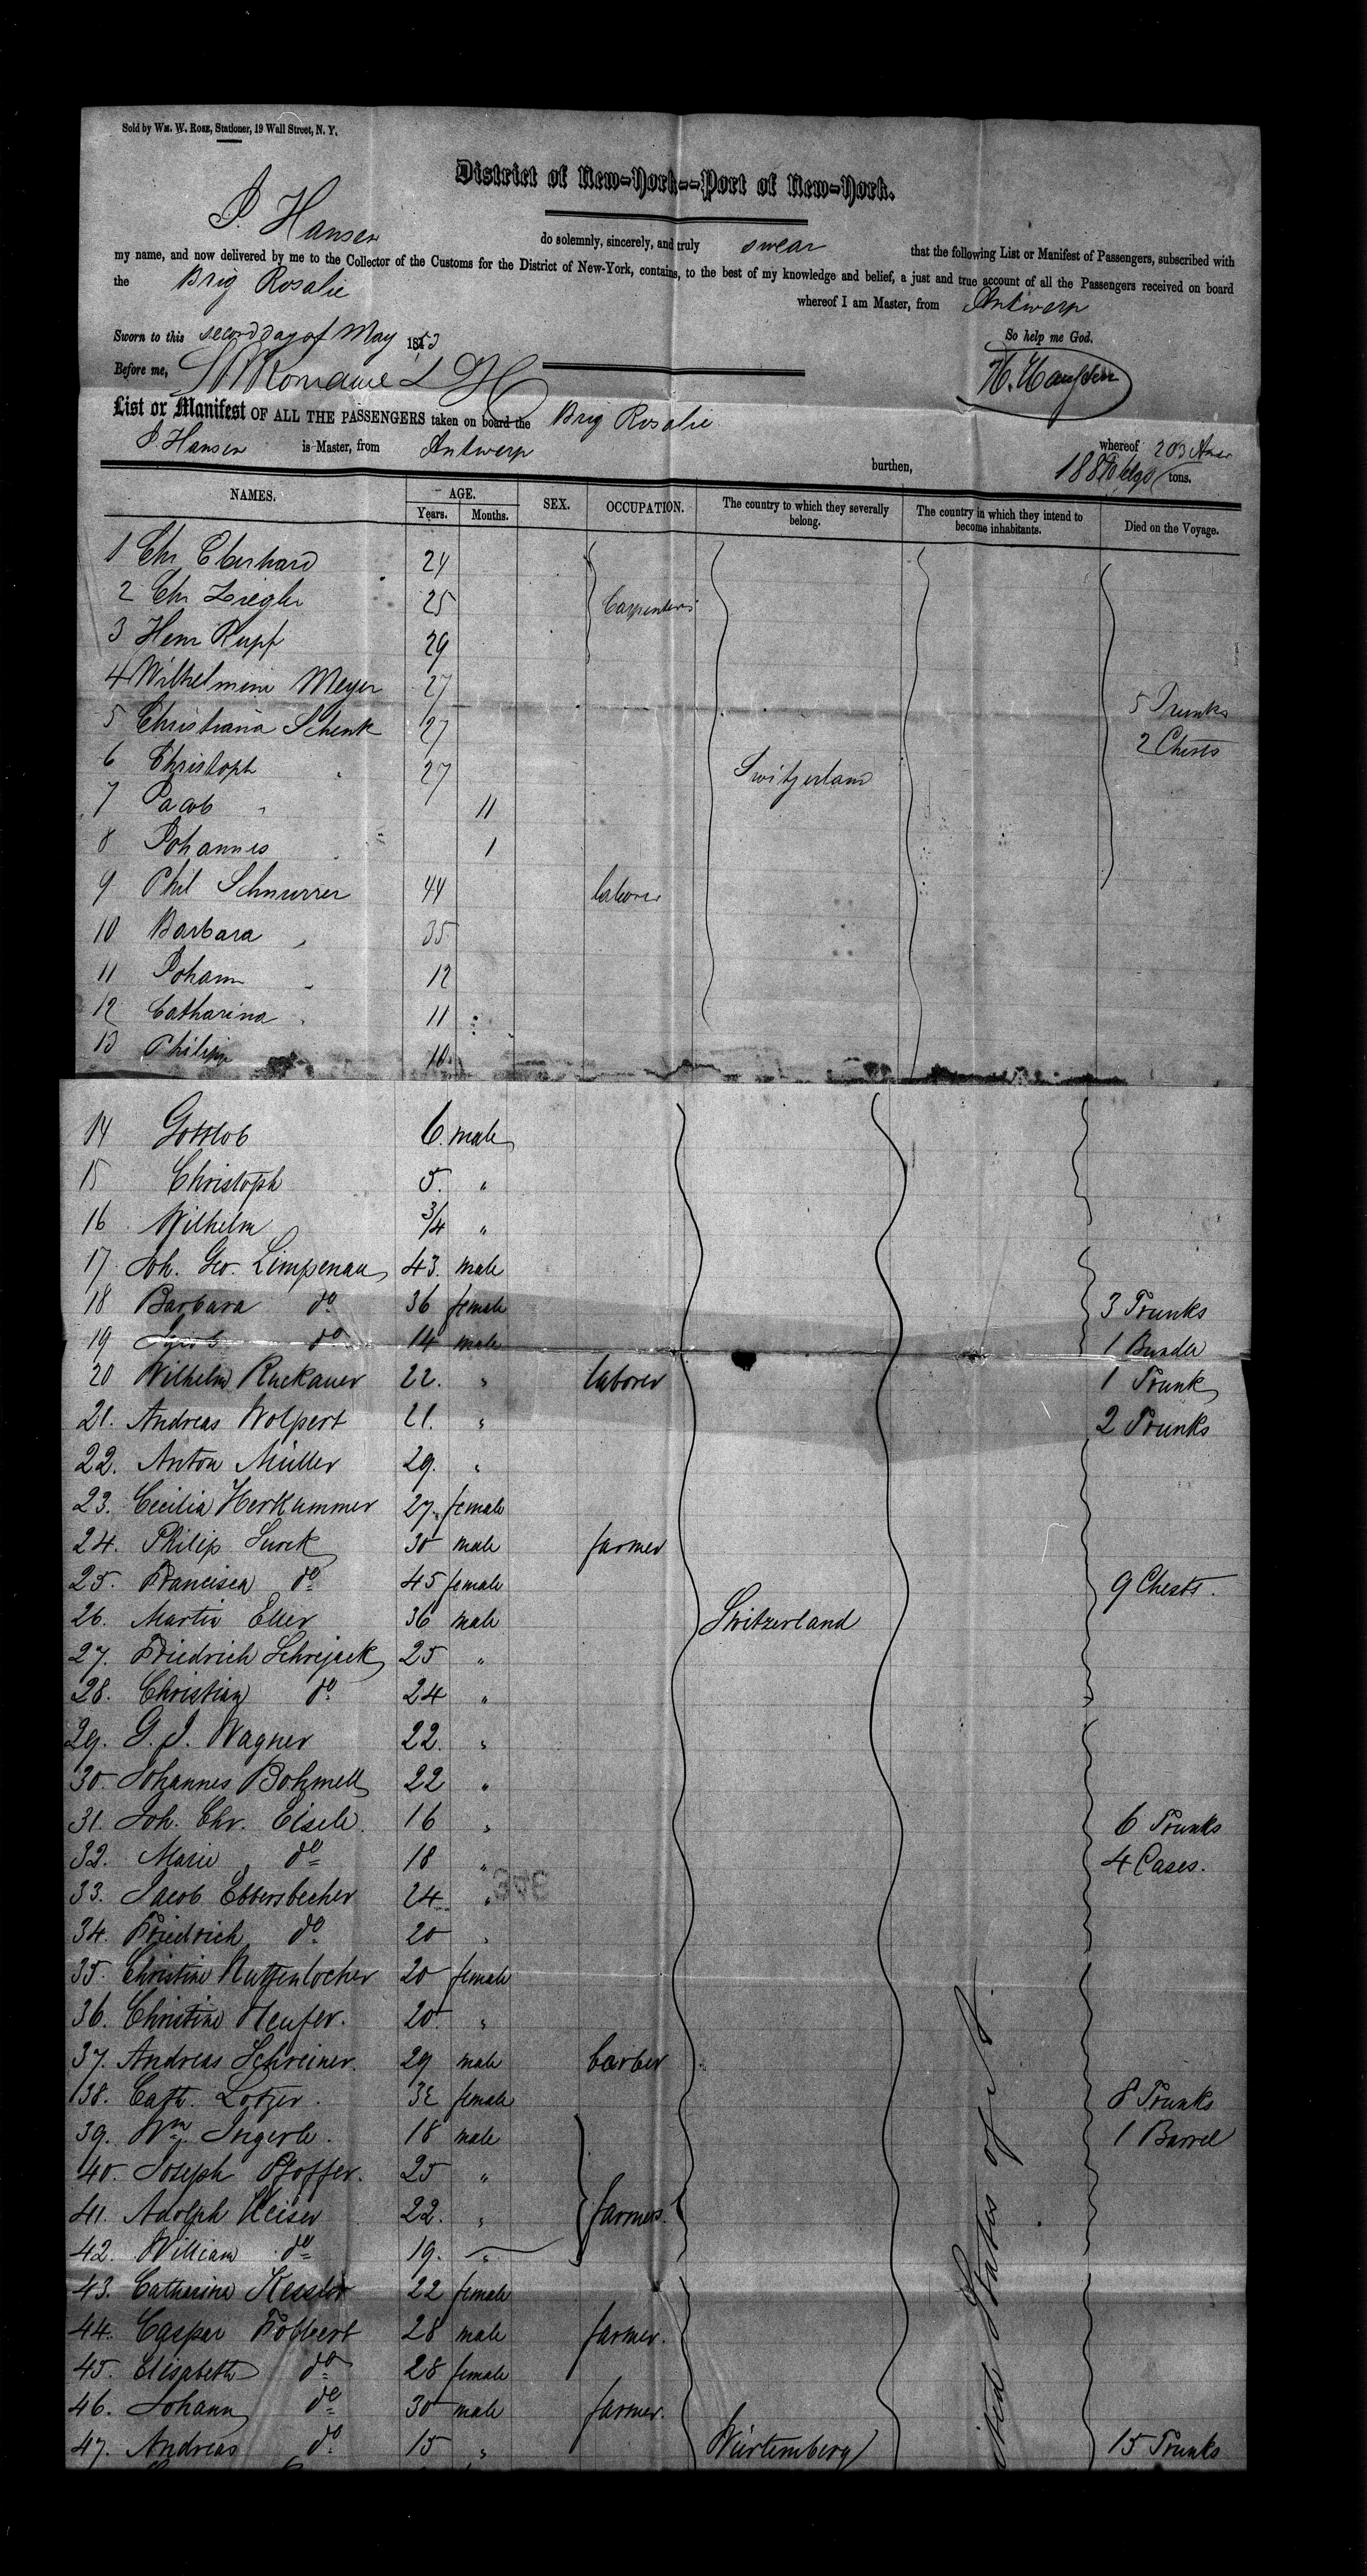 Sold by Wm. W. Rose, Stationer, 19 Wall Street, N. Y.
District of New-York--Port of New-York.
J. Hansen do solemnly, sincerely, and truly swear that the following List or Manifest of Passengers, subscribed with
my name, and now delivered by me to the Collector of the Customs for the District of New-York, contains, to the best of my knowledge and belief, a just and true account of all the Passengers received on board
the Brig Rosalie whereof I am Master, from Antwerp
Sworn to this second day of May 1853 So help me God.
Before me,
List or Manifest OF ALL THE PASSENGERS taken on board the Brig Rosalie whereof
J. Hansen is Master, from Antwerp burthen, 203 tons.
NAMES. AGE. SEX. OCCUPATION. The country to which they severally belong. The country in which they intend to become inhabitants. Died on the Voyage.
Years. Months.
1 Chr Eberhard 24
2 Chr Ziegler 25 Carpenters
3 Henr Rupf 29
4 Wilhelmine Meyer 27 5 Trunks
5 Christiana Schenk 27 2 Chests
6 Christoph " 27 Switzerland
7 Jacob " 11
8 Johannes 1
9 Phil Schnurrer 44 laborer
10 Barbara " 35
11 Johann " 12
12 Catharina " 11
13 Philipp 10
14 Gottlob 6 male
15 Christoph 5. "
16 Wilhelm 3/4 "
17 Joh. Geo. Limpenau 43. male
18 Barbara do 36 female 3 Trunks
19 Jacob do 14 male 1 Bundle
20 Wilhelm Ruckauer 22. " laborer 1 Trunk
21. Andreas Wolpert 21. " 2 Trunks
22. Anton Müller 29. "
23. Cecilia Herkummer 27. female
24. Philip Surck 30 male farmer
25. Francisca do 45 female 9 Chests.
26. Martin Eller 36 male Switzerland
27. Friedrich Schrejack 25 "
28. Christian do 24 "
29. G. J. Wagner 22. "
30. Johannes Bohmell 22 "
31. Joh. Chr. Eisele. 16 " 6 Trunks
32. Marie do 18 " 4 Cases.
33. Jacob Ebbersbecher 24 "
34. Friedrich do 20 "
35. Christine Nutzenlocher 20 female
36. Christine Neufer. 20. "
37. Andreas Schreiner. 29 male barber
38. Cath. Lotzer. 32 female 8 Trunks
39. Wm. Ingerle. 18 male 1 Barrel
40. Joseph Pfoffer. 25 "
41. Adolph Keiser 22. " farmers.
42. William do 19. "
43. Catharine Kessler 22 female
44. Caspar Folbert 28 male farmer.
45. Elisabeth do 28 female
46. Johann do 30 male farmer.
47. Andreas do 15 " Würtemberg 15 Trunks
States of